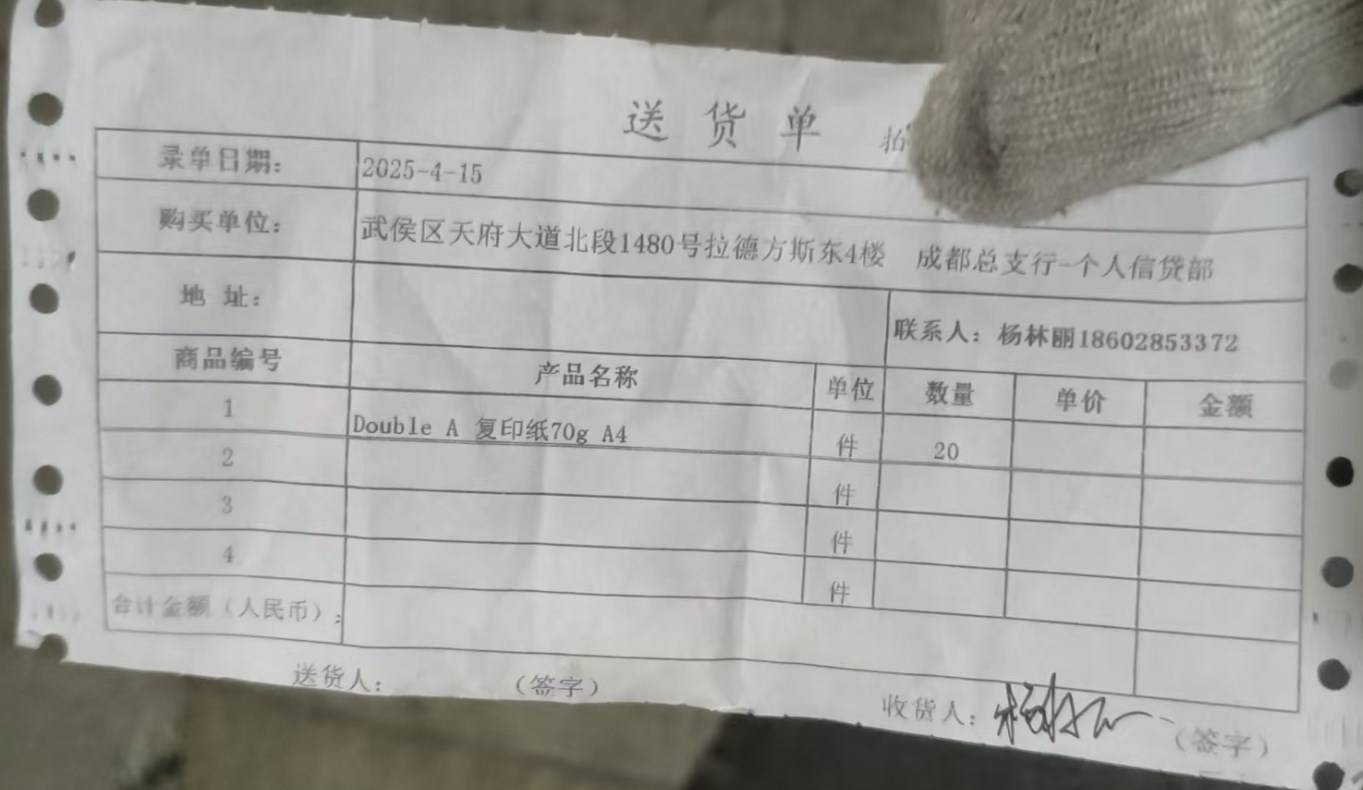 送货单
录单日期： 2025-4-15
购买单位： 武侯区天府大道北段1480号拉德方斯东4楼 成都总支行-个人信贷部
地 址： 联系人：杨林丽18602853372
商品编号 产品名称 单位 数量 单价 金额
1 Double A 复印纸70g A4 件 20
2 件
3 件
4 件
合计金额（人民币）：
送货人： （签字） 收货人： （签字）